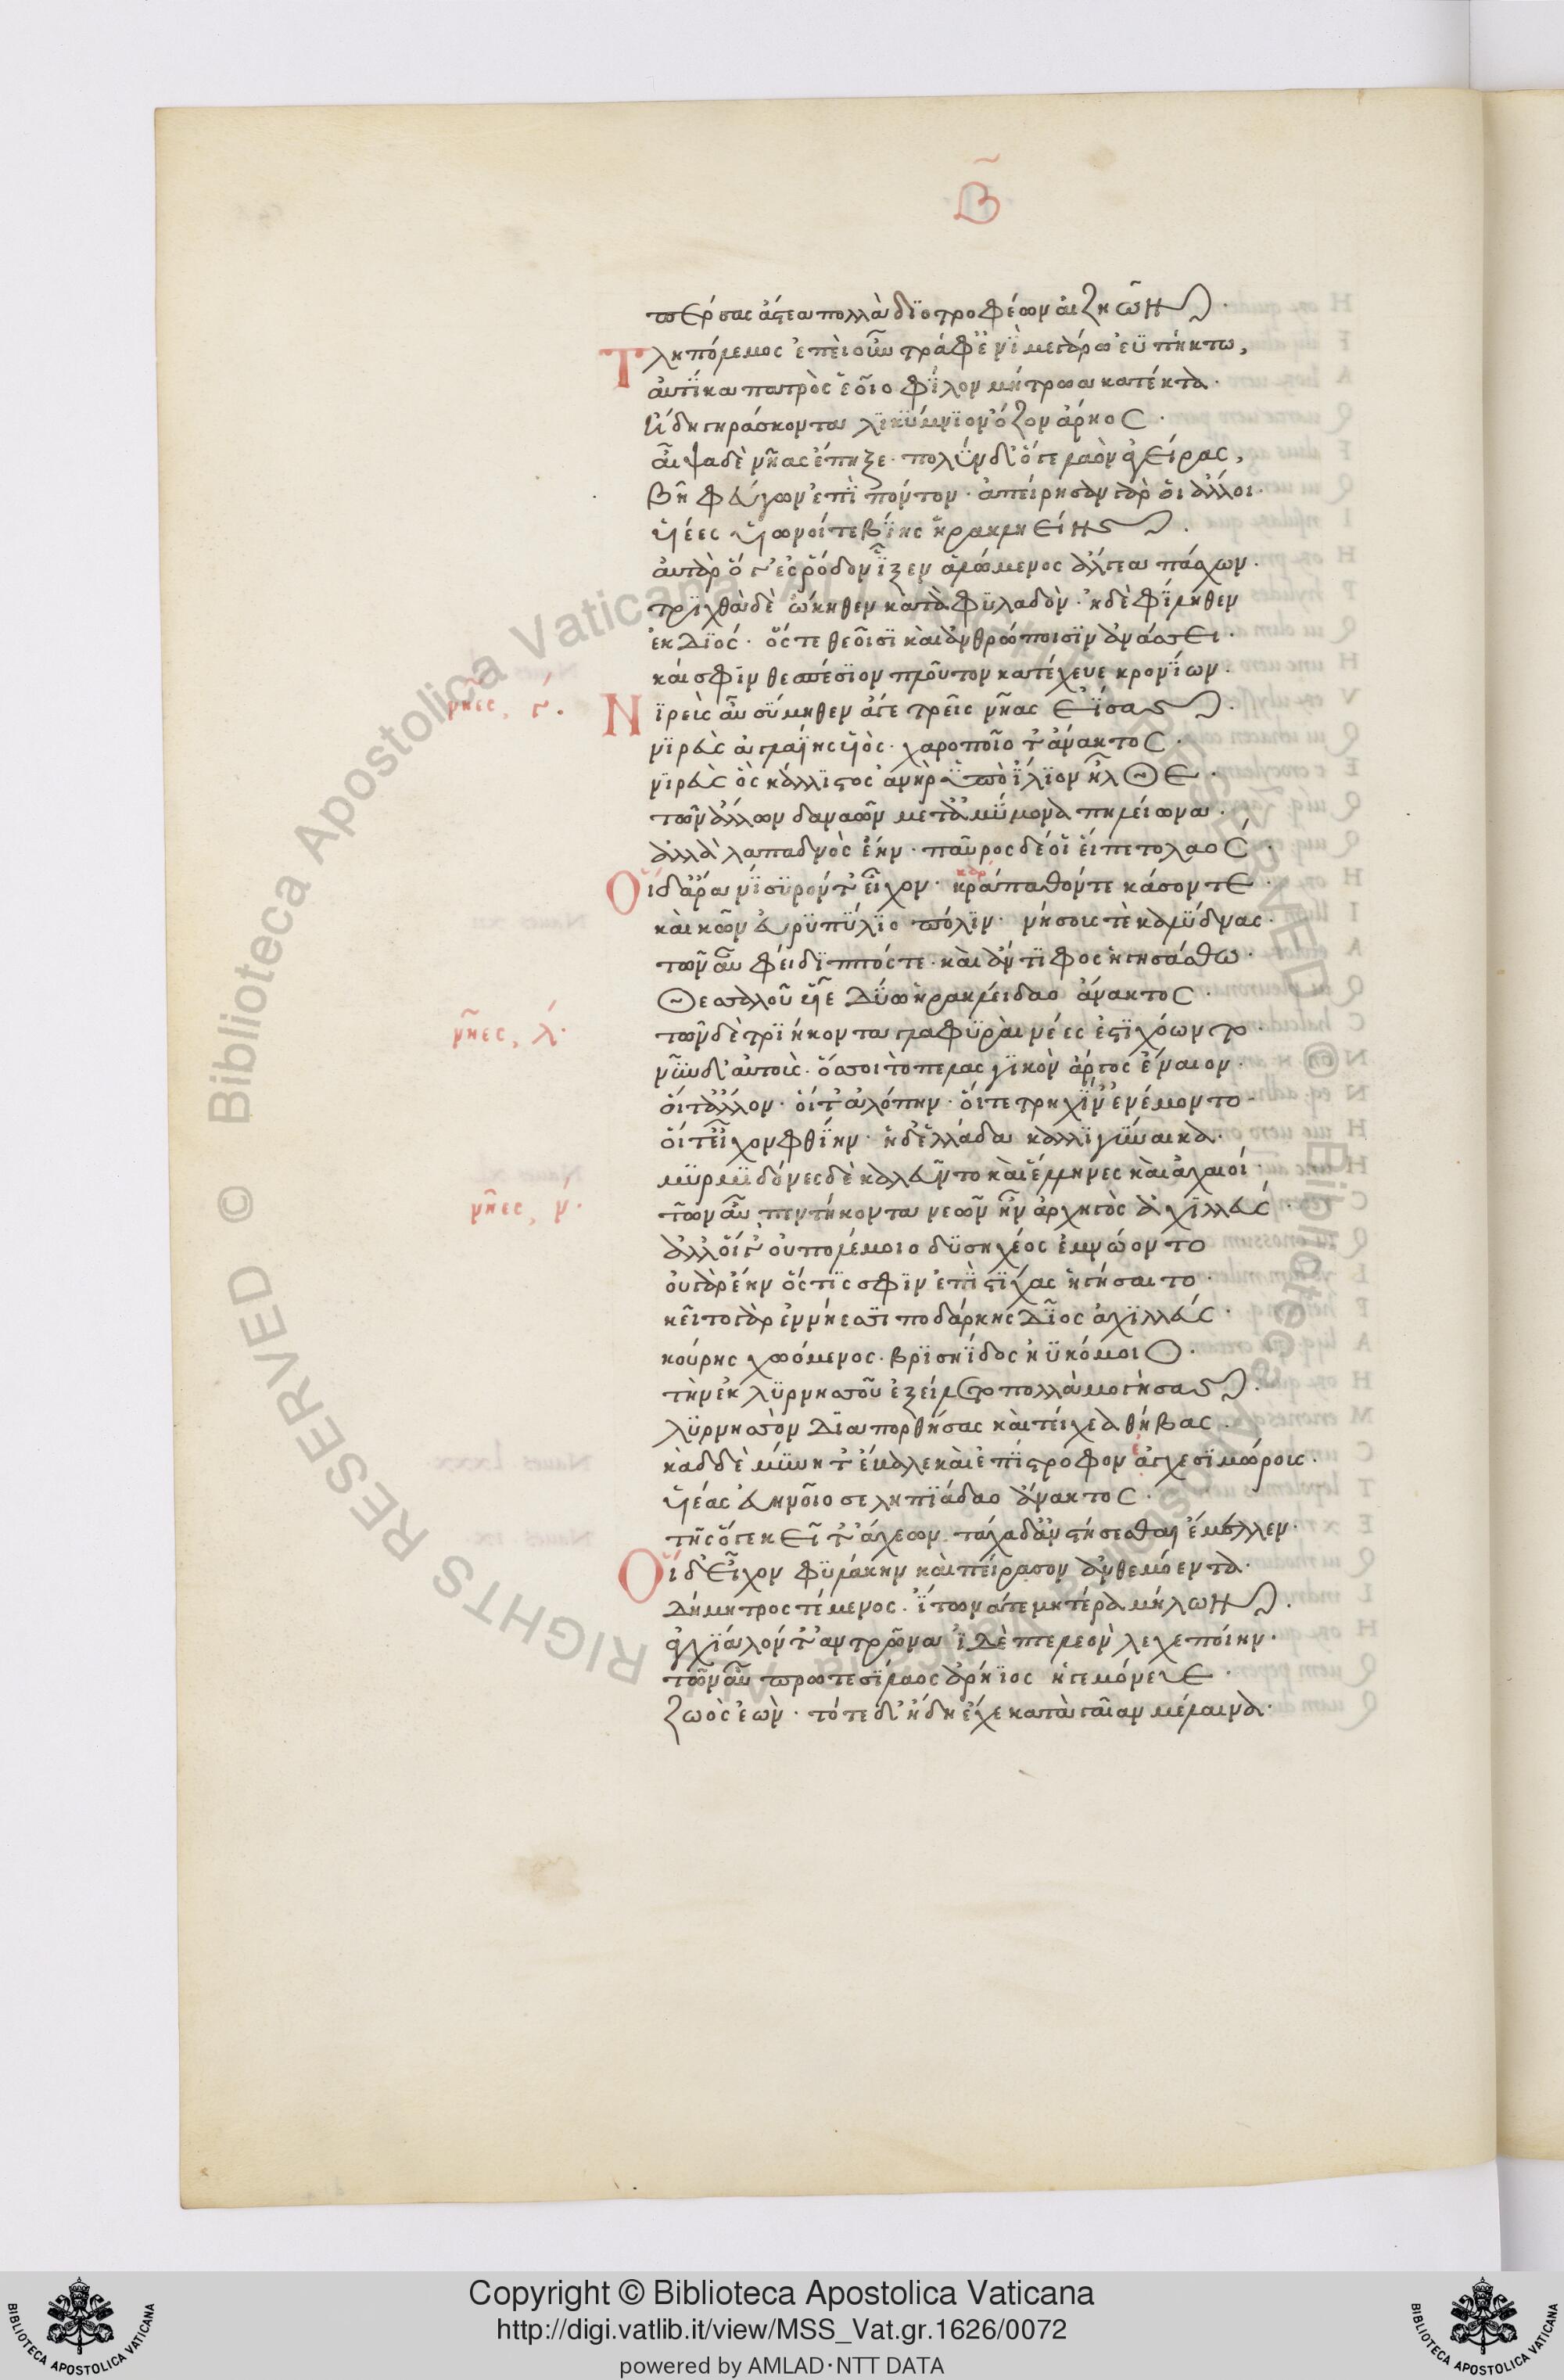 Β
πέρσας ἄστεα πολλὰ διοτροφέων αἰζηῶν.
Τληπόλεμος ἐπεὶ οὖν τράφ' ἐνὶ μεγάρω εὐπήκτω,
αὐτίκα πατρὸς ἑοῖο φίλον μήτρωα κατέκτα.
ἤδη γηράσκοντα λικύμνιον ὄζον ἄρηος.
αἶψα δὲ νῆας ἔπηξε. πολὺν δ' ὅγε λαὸν ἀγείρας,
βῆ φεύγων ἐπὶ πόντον. ἀπείρησαν γὰρ οἱ ἄλλοι.
υἱέες υἱωνοί τε βίης ἡρακληείης.
αὐτὰρ ὅγ' ἐς ῥόδον ἷξεν ἀλώμενος ἄλγεα πάσχων.
τριχθὰ δὲ ᾤκηθεν καταφυλαδὸν. ἠδὲ φίληθεν
ἐκ Διός. ὅς τε θεοῖσι καὶ ἀνθρώποισιν ἀνάσσει.
καί σφιν θεσπέσιον πλοῦτον κατέχευε κρονίων.
νῆες, γ.
Νιρεὺς αὖ σύμηθεν ἄγε τρεῖς νῆας ἐΐσας.
νιρεὺς ἀγλαΐης υἱὸς. χαροποῖο τ' ἄνακτος.
νιρεὺς ὃς κάλλιστος ἀνὴρ ὑπὸ ἴλιον ἦλθε.
τῶν ἄλλων δαναῶν μετ' ἀμύμονα πηλείωνα.
ἀλλὰ λαπαδνὸς ἔην. παῦρος δέ οἱ εἵπετο λαός.
Οἳ δ' ἄρα νίσυρόν τ' εἶχον. κράπαθόν τε κάσον τε.
καρ
καὶ κῶν εὐρυπύλιο πόλιν. νήσους τὲ καλύδνας.
τῶν αὖ φείδιππός τε. καὶ ἄντιφος ἡγησάσθω.
Θεσσαλοῦ υἷε δύω ἡρακλείδαο ἄνακτος.
νῆες, λ.
τῶν δὲ τριήκοντα γλαφυραὶ νέες ἐστιχόωντο.
νῦν δ' αὐτοὺς. ὅσσοι τὸ πελασγικὸν ἄργος ἔναιον.
οἵ τ' ἄλον. οἵ τ' ἀλόπην. οἵ τε τρηχῖν' ἐνέμοντο.
οἵ τ' εἶχον φθίην. ἠδ' ἑλλάδα καλλιγύναικα.
μυρμιδόνες δὲ καλεῦντο καὶ ἕλληνες καὶ ἀχαιοί.
νῆες, ν.
τῶν αὖ πεντήκοντα νεῶν ἦν ἀρχηγὸς ἀχιλλεύς.
ἀλλ' οἵγ' οὐ πολέμοιο δυσηχέος ἐμνώοντο
οὐ γὰρ ἔην ὅς τις σφιν ἐπὶ στίχας ἡγήσαιτο.
κεῖτο γὰρ ἐν νήεσσι ποδάρκης δῖος ἀχιλλεύς.
κούρης χωόμενος. βρισηΐδος ἠϋκόμοιο.
τὴν ἐκ λυρνησσοῦ ἐξείλετο πολλὰ μογήσας.
λυρνησσὸν δια πορθήσας καὶ τείχεα θήβας.
κὰδ δὲ μύνητ' ἔβαλε καὶ ἐπίστροφον ἐγχεσιμώρους.
υἱέας εὐηνοῖο σεληπιάδαο ἄνακτος.
τῆς ὅγε κεῖτ' ἀχέων. τάχα δ' ἀνστήσεσθαι ἔμελλεν.
Οἳ δ' εἶχον φυλάκην καὶ πείρασον ἀνθεμόεντα.
Δήμητρος τέμενος. ἴτωνά τε μητέρα μήλων.
ἀγχίαλόν τ' ἀντρῶνα ἰδὲ πτελεὸν λεχεποίην.
τῶν αὖ πρωτεσίλαος ἀρήϊος ἡγεμόνευε.
ζωὸς ἐὼν. τότε δ' ἤδη ἔχε κατὰ γαῖαν μέλαινα.
© Biblioteca Apostolica Vaticana ALL RIGHTS RESERVED
Copyright © Biblioteca Apostolica Vaticana
http://digi.vatlib.it/view/MSS_Vat.gr.1626/0072
powered by AMLAD·NTT DATA
BIBLIOTECA APOSTOLICA VATICANA
BIBLIOTECA APOSTOLICA VATICANA